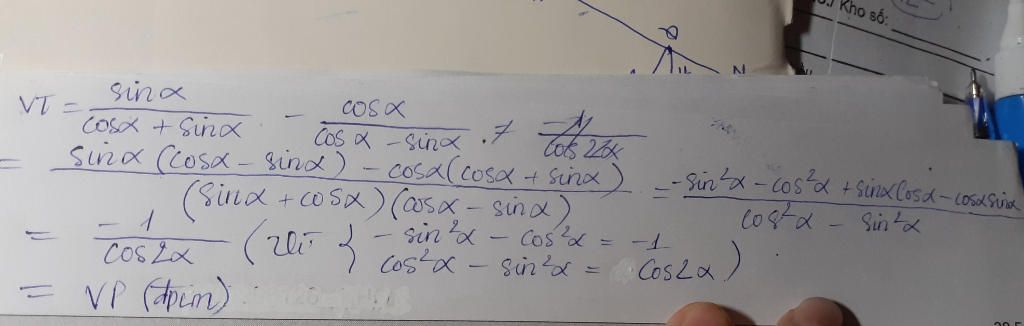 Kho số:
VT = sinα/(cosα + sinα) - cosα/(cosα - sinα)
= (sinα(cosα - sinα) - cosα(cosα + sinα))/((sinα + cosα)(cosα - sinα)) = (-sin²α - cos²α + sinαcosα - cosαsinα)/(cos²α - sin²α)
= -1/cos2α (Vì { -sin²α - cos²α = -1
cos²α - sin²α = cos2α )
= VP (đpcm)